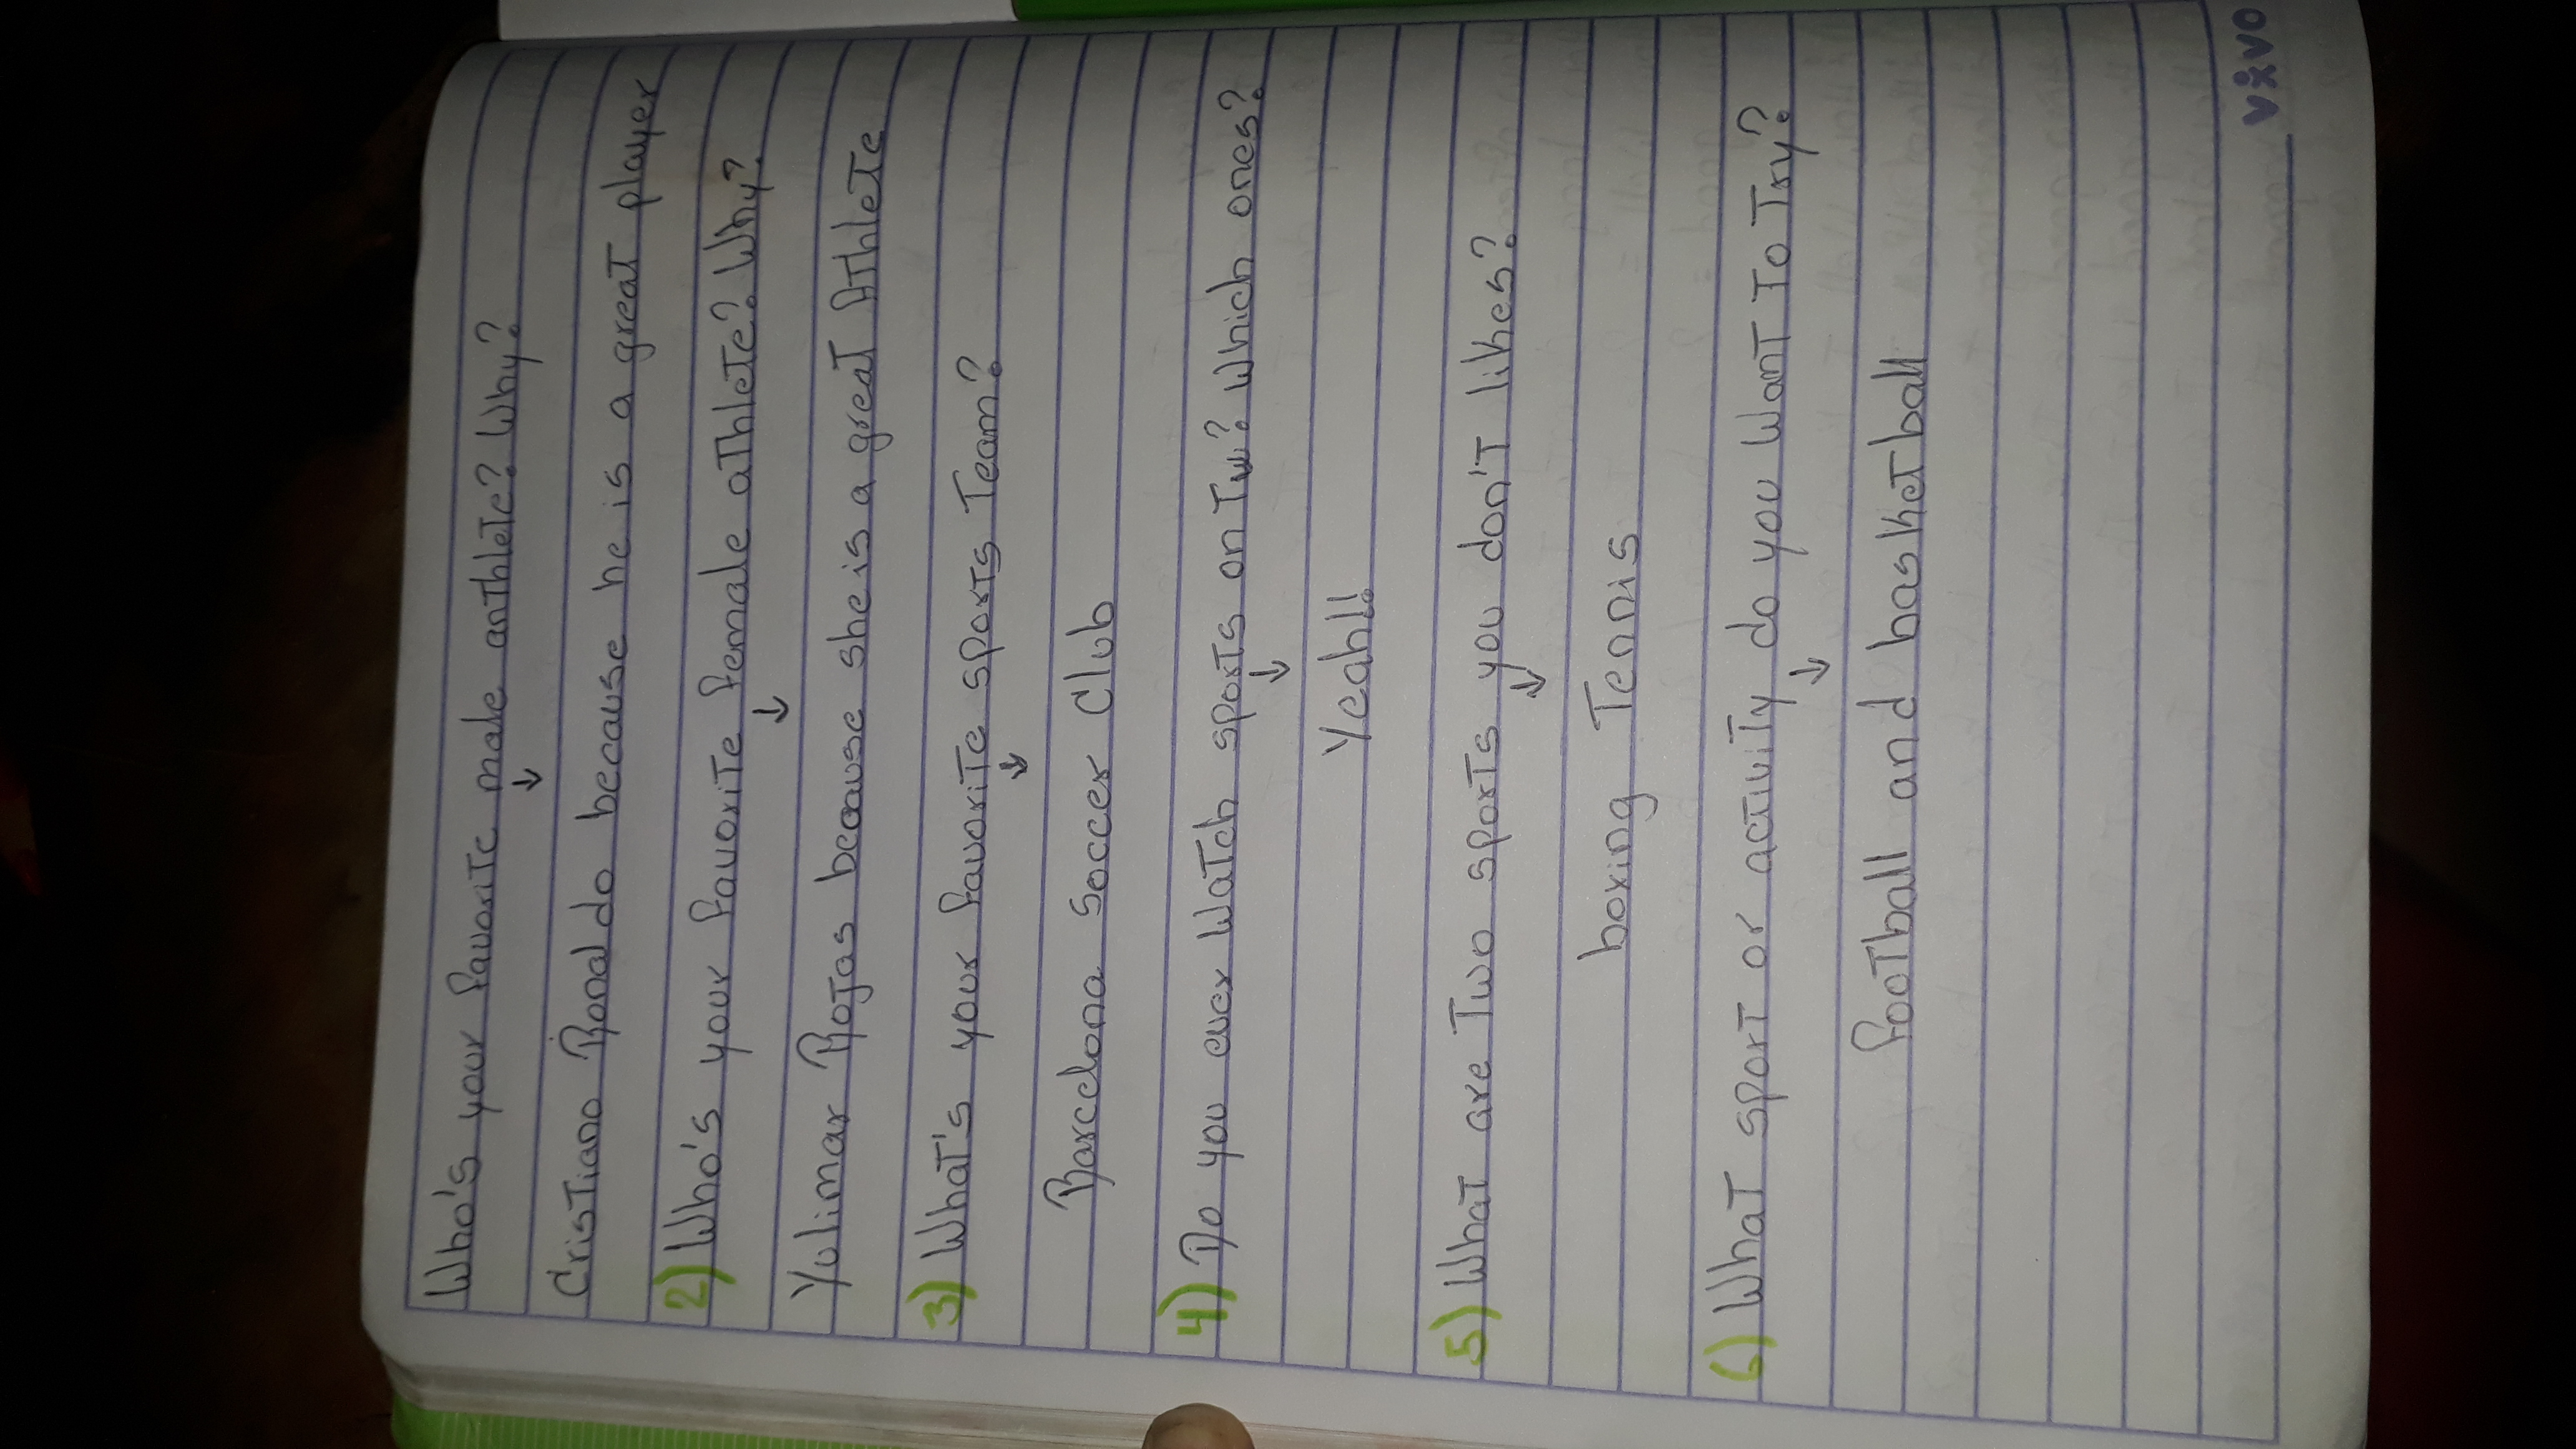 Who's your favorite male anthlete? Why?
↓
Cristiano Ronaldo because he is a great player
2) Who's your favorite female athlete? Why?
↓
Yulimar Rojas because she is a great Athlete
3) What's your favorite sports Team?
↓
Barcelona Soccer Club
4) Do you ever watch sports on Tv? Which ones?
↓
Yeah!!
5) What are Two sports you don't likes?
↓
boxing Tennis
6) What sport or activity do you want To Try?
↓
football and basketball
vivo